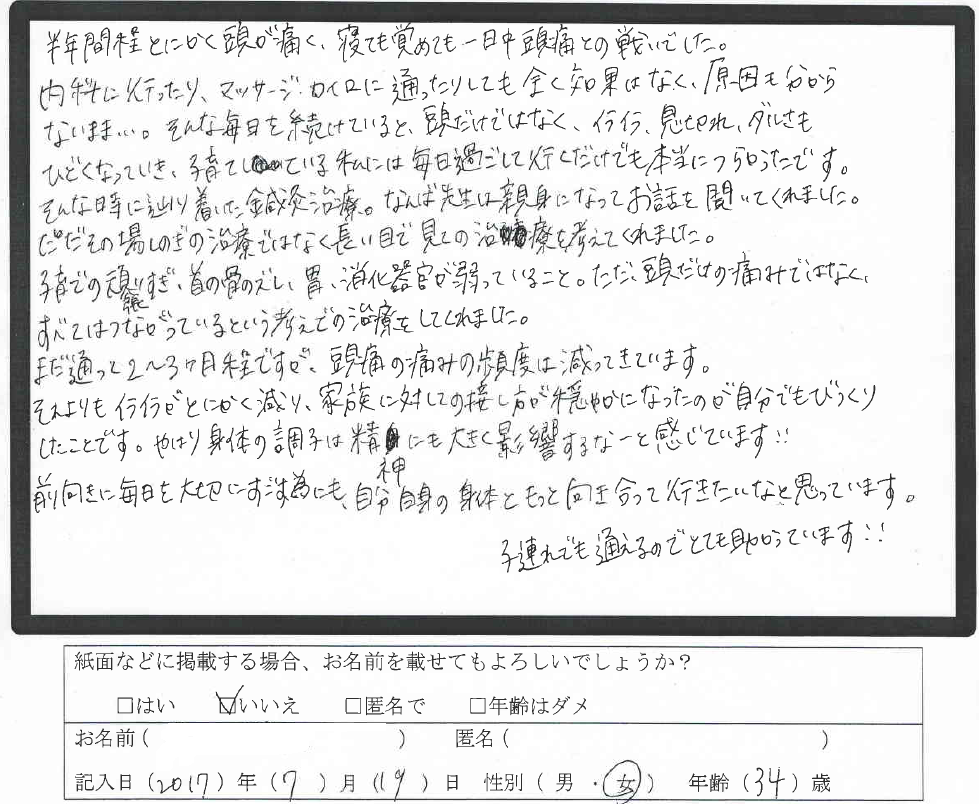 半年間程とにかく頭が痛く、寝ても覚めても一日中頭痛との戦いでした。
内科に行ったり、マッサージ、カイロに通ったりしても全く効果はなく、原因も分から
ないまま…。そんな毎日を続けていると、頭だけではなく、イライラ、息切れ、ダルさも
ひどくなっていき、子育てしている私には毎日過ごして行くだけでも本当につらかったです。
そんな時に辿り着いた鍼灸治療。なんば先生は親身になってお話を聞いてくれました。
ただその場しのぎの治療ではなく長い目で見ての治療を考えてくれました。
子育での頑張りすぎ、首の骨のズレ、胃、消化器官が弱っていること。ただ、頭だけの痛みではなく、
すべてはつながっているという考えでの治療をしてくれました。
まだ通って2〜3ヶ月程ですが、頭痛の痛みの頻度は減ってきています。
それよりもイライラがとにかく減り、家族に対しての接し方が穏やかになったのが自分でもびっくり
したことです。やはり身体の調子は精神にも大きく影響するなーと感じています!!
前向きに毎日を大切にすごす為にも、自分自身の身体ともっと向き合って行きたいなと思っています。
子連れでも通えるのでとても助かっています!!
紙面などに掲載する場合、お名前を載せてもよろしいでしょうか?
□はい ☑いいえ □匿名で □年齢はダメ
お名前( ) 匿名( )
記入日(2017)年(7)月(19)日 性別(男・女) 年齢(34)歳